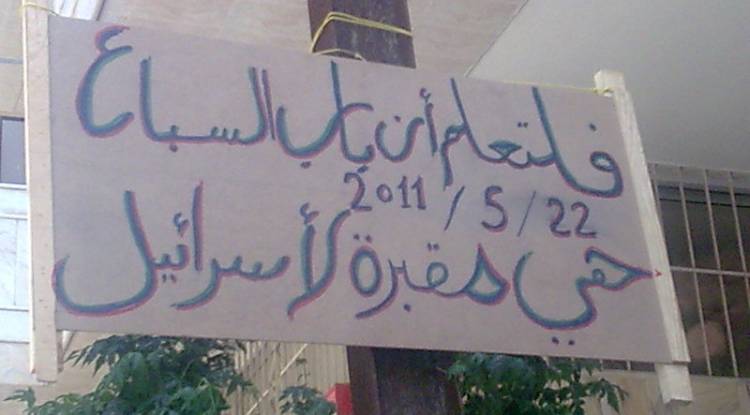 فلتعلم أن باب السباع
2011 / 5 / 22
هي مقبرة لأسرائيل